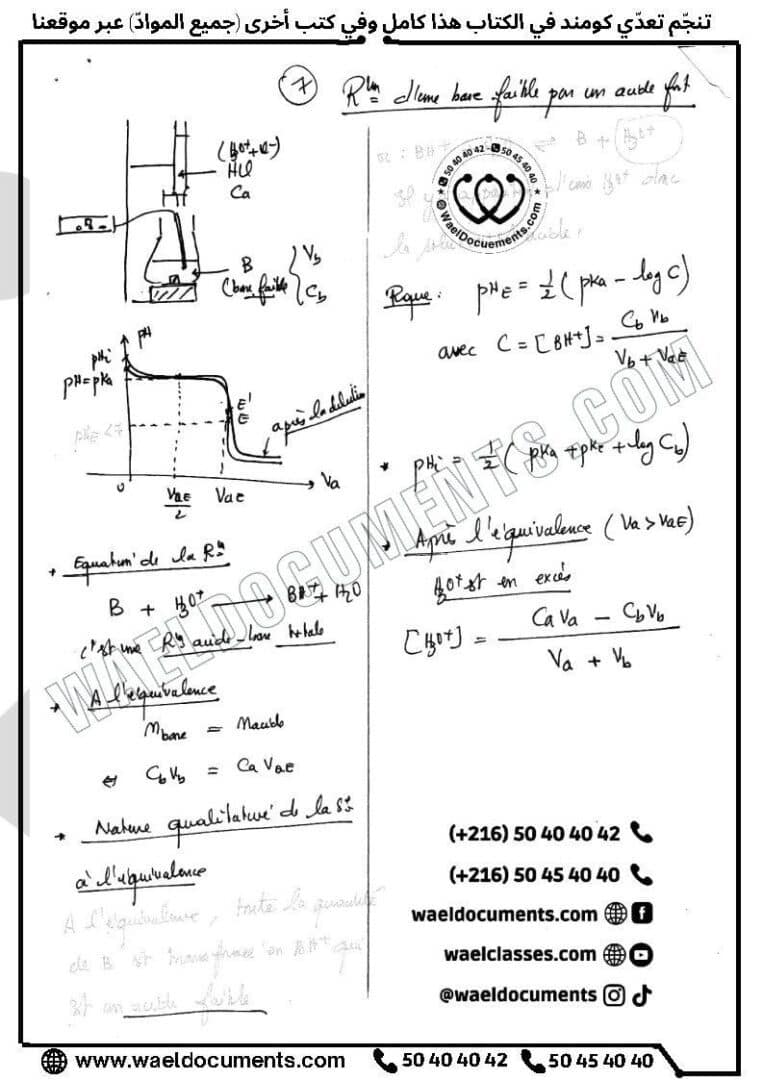 تنجّم تعدّي كومند في الكتاب هذا كامل وفي كتب أخرى (جميع الموادّ) عبر موقعنا
7 R^n d'une base faible par un acide fort
(H3O+ + Cl-)
HCl
Ca
B
(base faible)
Vb
Cb
pH
pHi
pH=pKa
pHE<7
E'
E
après la dilution
0
VaE/2
VaE
Va
* Equation de la R^n
B + H3O+ → BH+ + H2O
c'est une R^n acide-base totale
* A l'équivalence
nbase = nacide
⇔ CbVb = CaVaE
* Nature qualitative de la S^n
à l'équivalence
A l'équivalence, toute la quantité
de B est transformée en BH+ qui
est un acide faible
B + H3O+
ions H3O+ donc
la solution
50 40 40 42 - 50 45 40 40
WaelDocuements.com
Rque : pHE = 1/2 (pKa - log C)
avec C = [BH+] = CbVb / Vb + VaE
* pHi = 1/2 (pKa + pKe + log Cb)
* Après l'équivalence (Va > VaE)
H3O+ est en excès
[H3O+] = CaVa - CbVb / Va + Vb
WAELDOCUMENTS.COM
(+216) 50 40 40 42
(+216) 50 45 40 40
waeldocuments.com
waelclasses.com
@waeldocuments
www.waeldocuments.com 50 40 40 42 50 45 40 40